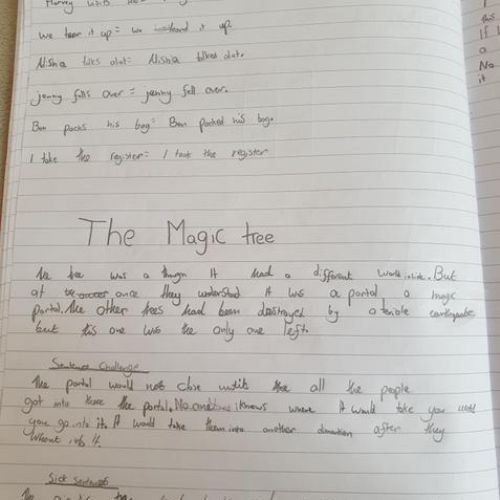 we tear it up = we it up
Alisha talks alot = Alisha talked alot.
jenny falls over = jenny fell over.
Ben packs his bag = Ben packed his bag.
I take the register = I took the register
The Magic tree
the tree was a it had a different world inside. But
at once they understand it was a portal a magic
portal. the other trees had been destroyed by a terible earthquake
but this one was the only one left.
Sentence Challenge
the portal would not close untill the all the people
got into the portal. No one knows where it would take you until
you go into it. It would take them into another dimention after they
whent into it.
Sick Sentences
the
this
If I
a
No
it